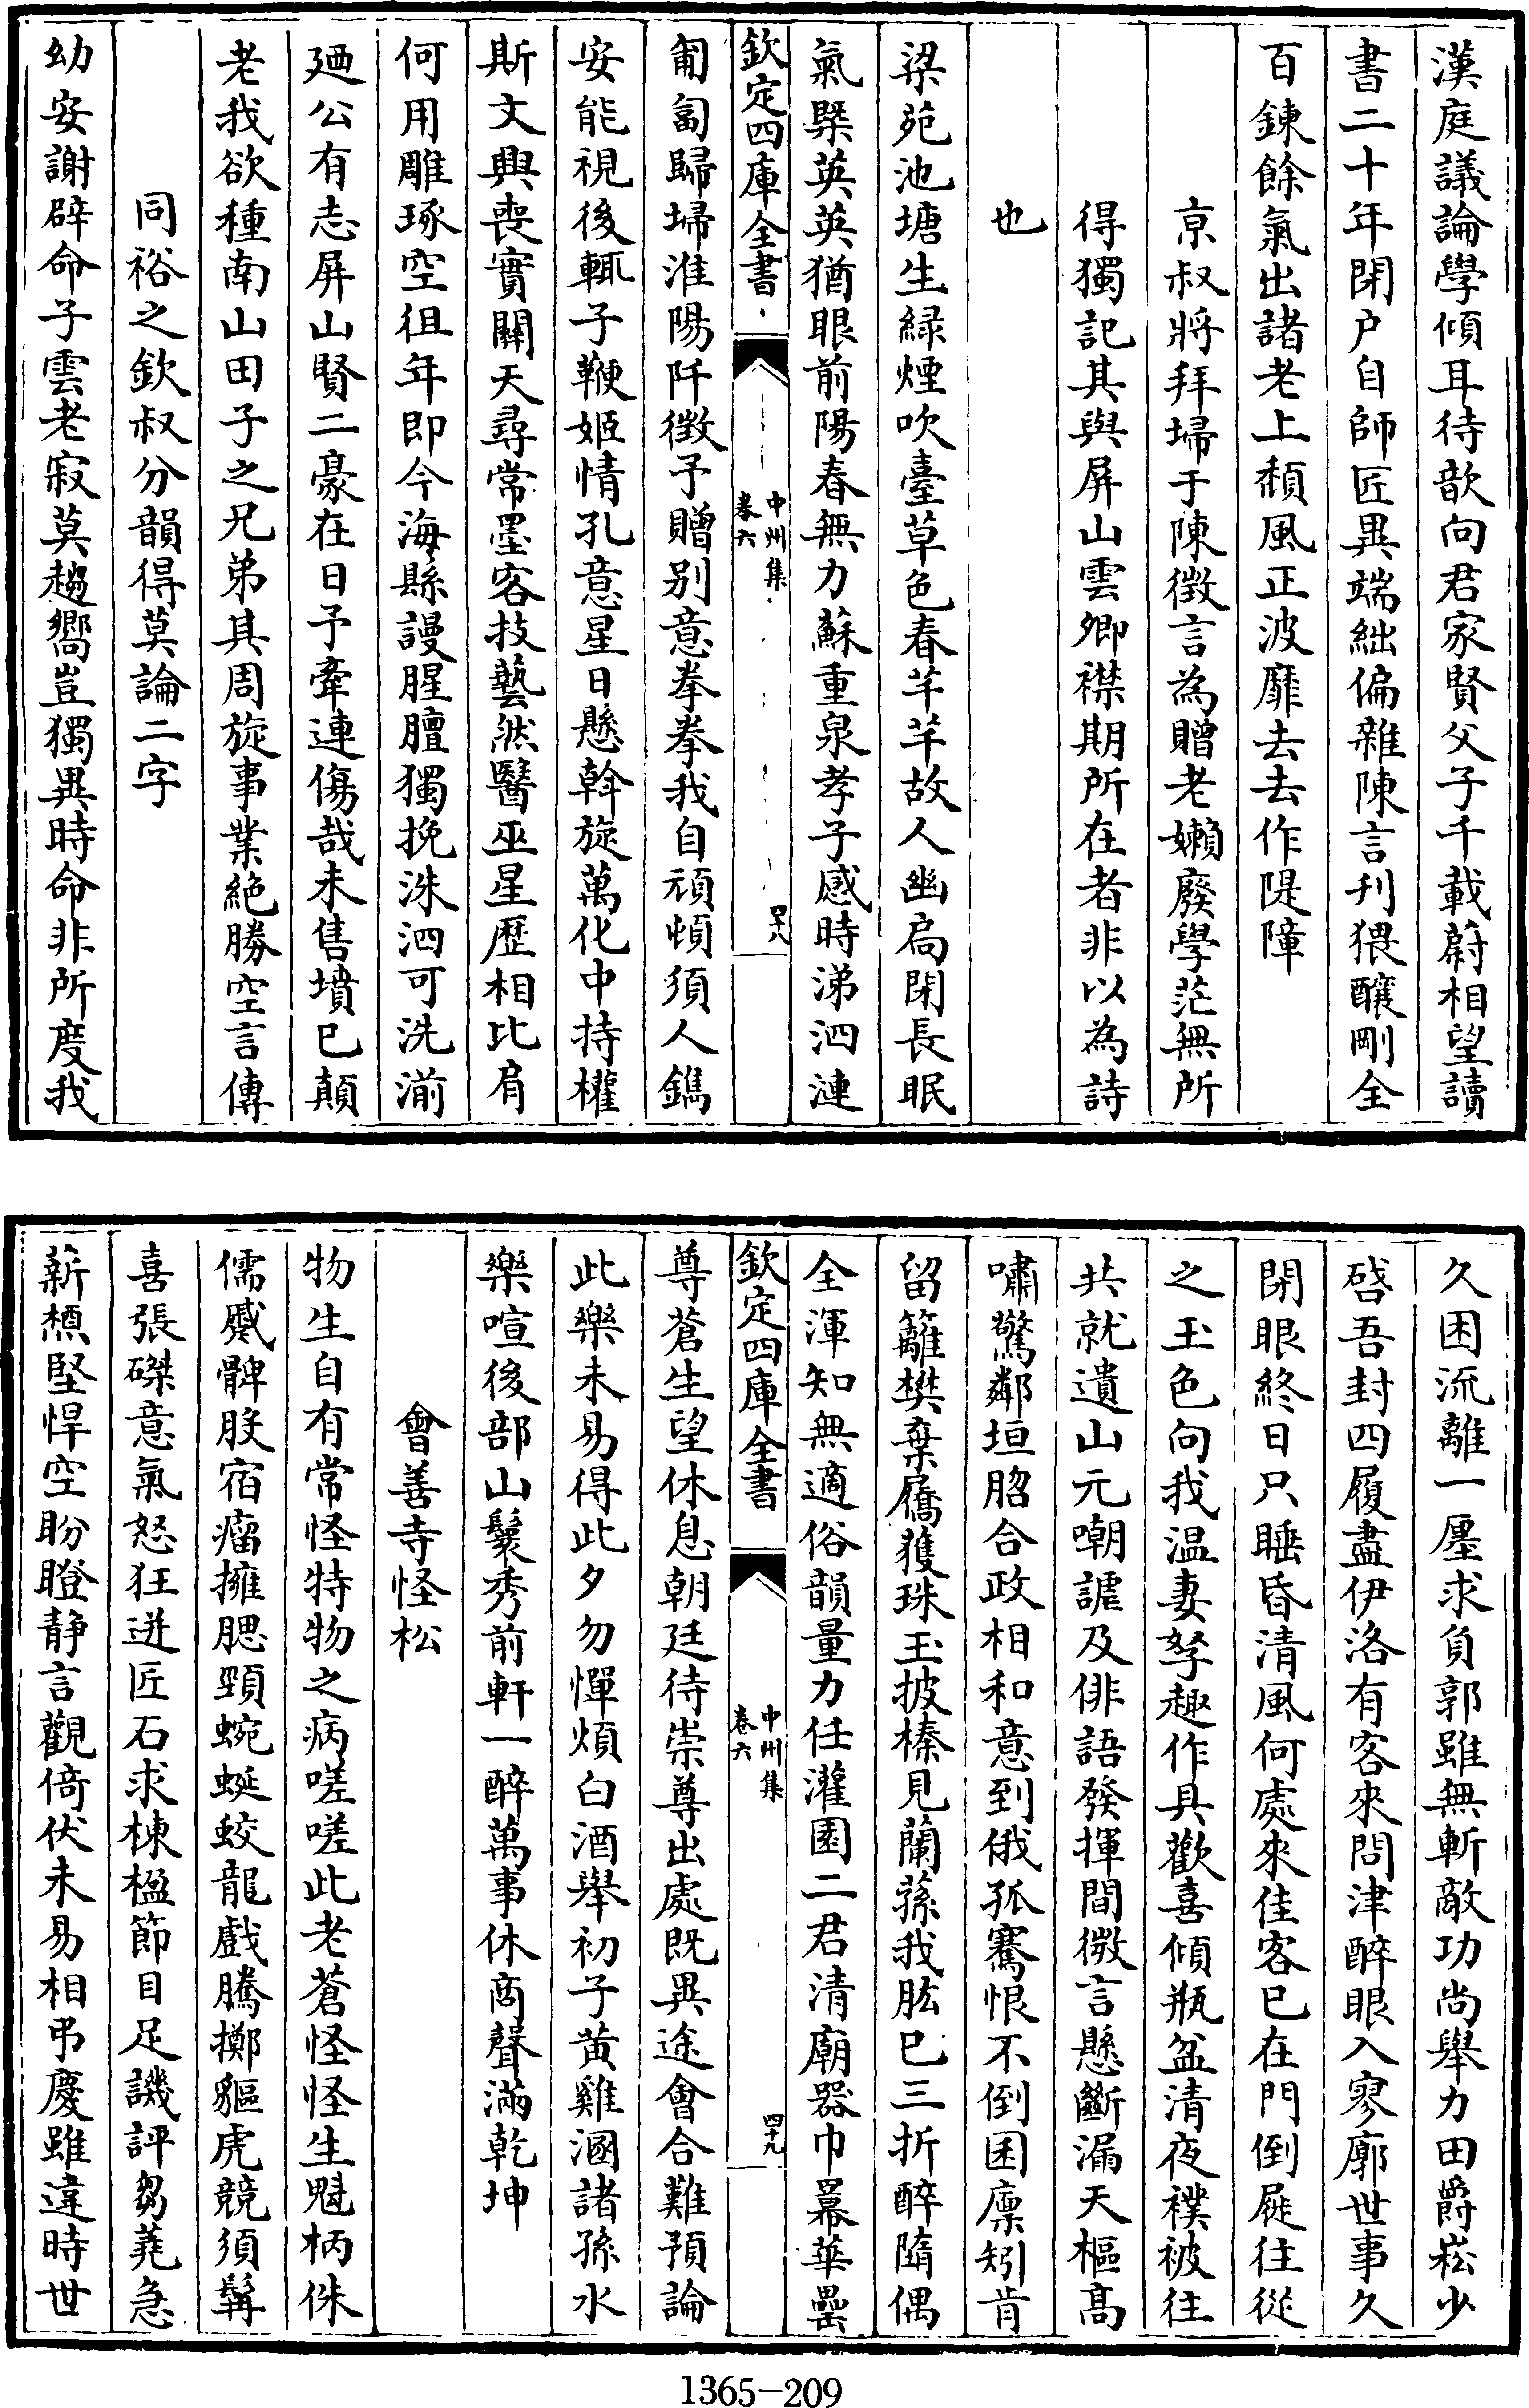 漢庭議論學傾耳待歆向君家賢父子千載蔚相望讀
書二十年閉户自師匠異端絀偏雜陳言刋猥釀剛全
百鍊餘氣出諸老上頽風正波靡去去作隄障
京叔將拜埽于陳徴言為贈老嬾廢學茫無所
得獨記其與屏山雲卿襟期所在者非以為詩
也
梁苑池塘生緑煙吹臺草色春芊芊故人幽扃閉長眠
氣槩英英猶眼前陽春無力蘇重泉孝子感時涕泗漣
欽定四庫全書
中州集
卷六
四十八
匍匐歸埽淮陽阡徴予贈别意拳拳我自頑頓須人鐫
安能視後輒子鞭姬情孔意星日懸斡旋萬化中持權
斯文興喪實關天尋常墨客技藝然醫巫星歴相比肩
何用雕琢空徂年即今海縣謾腥膻獨挽洙泗可洗湔
廼公有志屏山賢二豪在日予牽連傷哉未售墳已顛
老我欲種南山田子之兄弟其周旋事業絶勝空言傳
同裕之欽叔分韻得莫論二字
幼安謝辟命子雲老寂莫趨嚮豈獨異時命非所度我
久困流離一廛求負郭雖無斬敵功尚舉力田爵崧少
啓吾封四履盡伊洛有客來問津醉眼入寥廓世事久
閉眼終日只睡昏清風何處來佳客已在門倒屣往從
之玉色向我温妻孥趣作具歡喜傾瓶盆清夜襆被往
共就遺山元嘲謔及俳語發揮間微言懸斷漏天樞髙
嘯驚鄰垣脗合政相和意到俄孤騫恨不倒囷廪矧肯
留籬樊棄屩獲珠玉披榛見蘭蓀我肱已三折醉墮偶
全渾知無適俗韻量力任灌園二君清廟器巾羃華罍
欽定四庫全書
中州集
卷六
四十九
尊蒼生望休息朝廷待崇尊出處既異途會合難預論
此樂未易得此夕勿憚煩白酒舉初子黄雞溷諸孫水
樂喧後部山鬟秀前軒一醉萬事休商聲滿乾坤
會善寺怪松
物生自有常怪特物之病嗟嗟此老蒼怪怪生魁柄侏
儒蹙髀股宿瘤擁腮頸蜿蜒蛟龍戲騰擲貙虎競須髯
喜張磔意氣怒狂迸匠石求棟楹節目足譏評芻蕘急
薪槱堅悍空盼瞪静言觀倚伏未易相弔慶雖違時世
1365-209